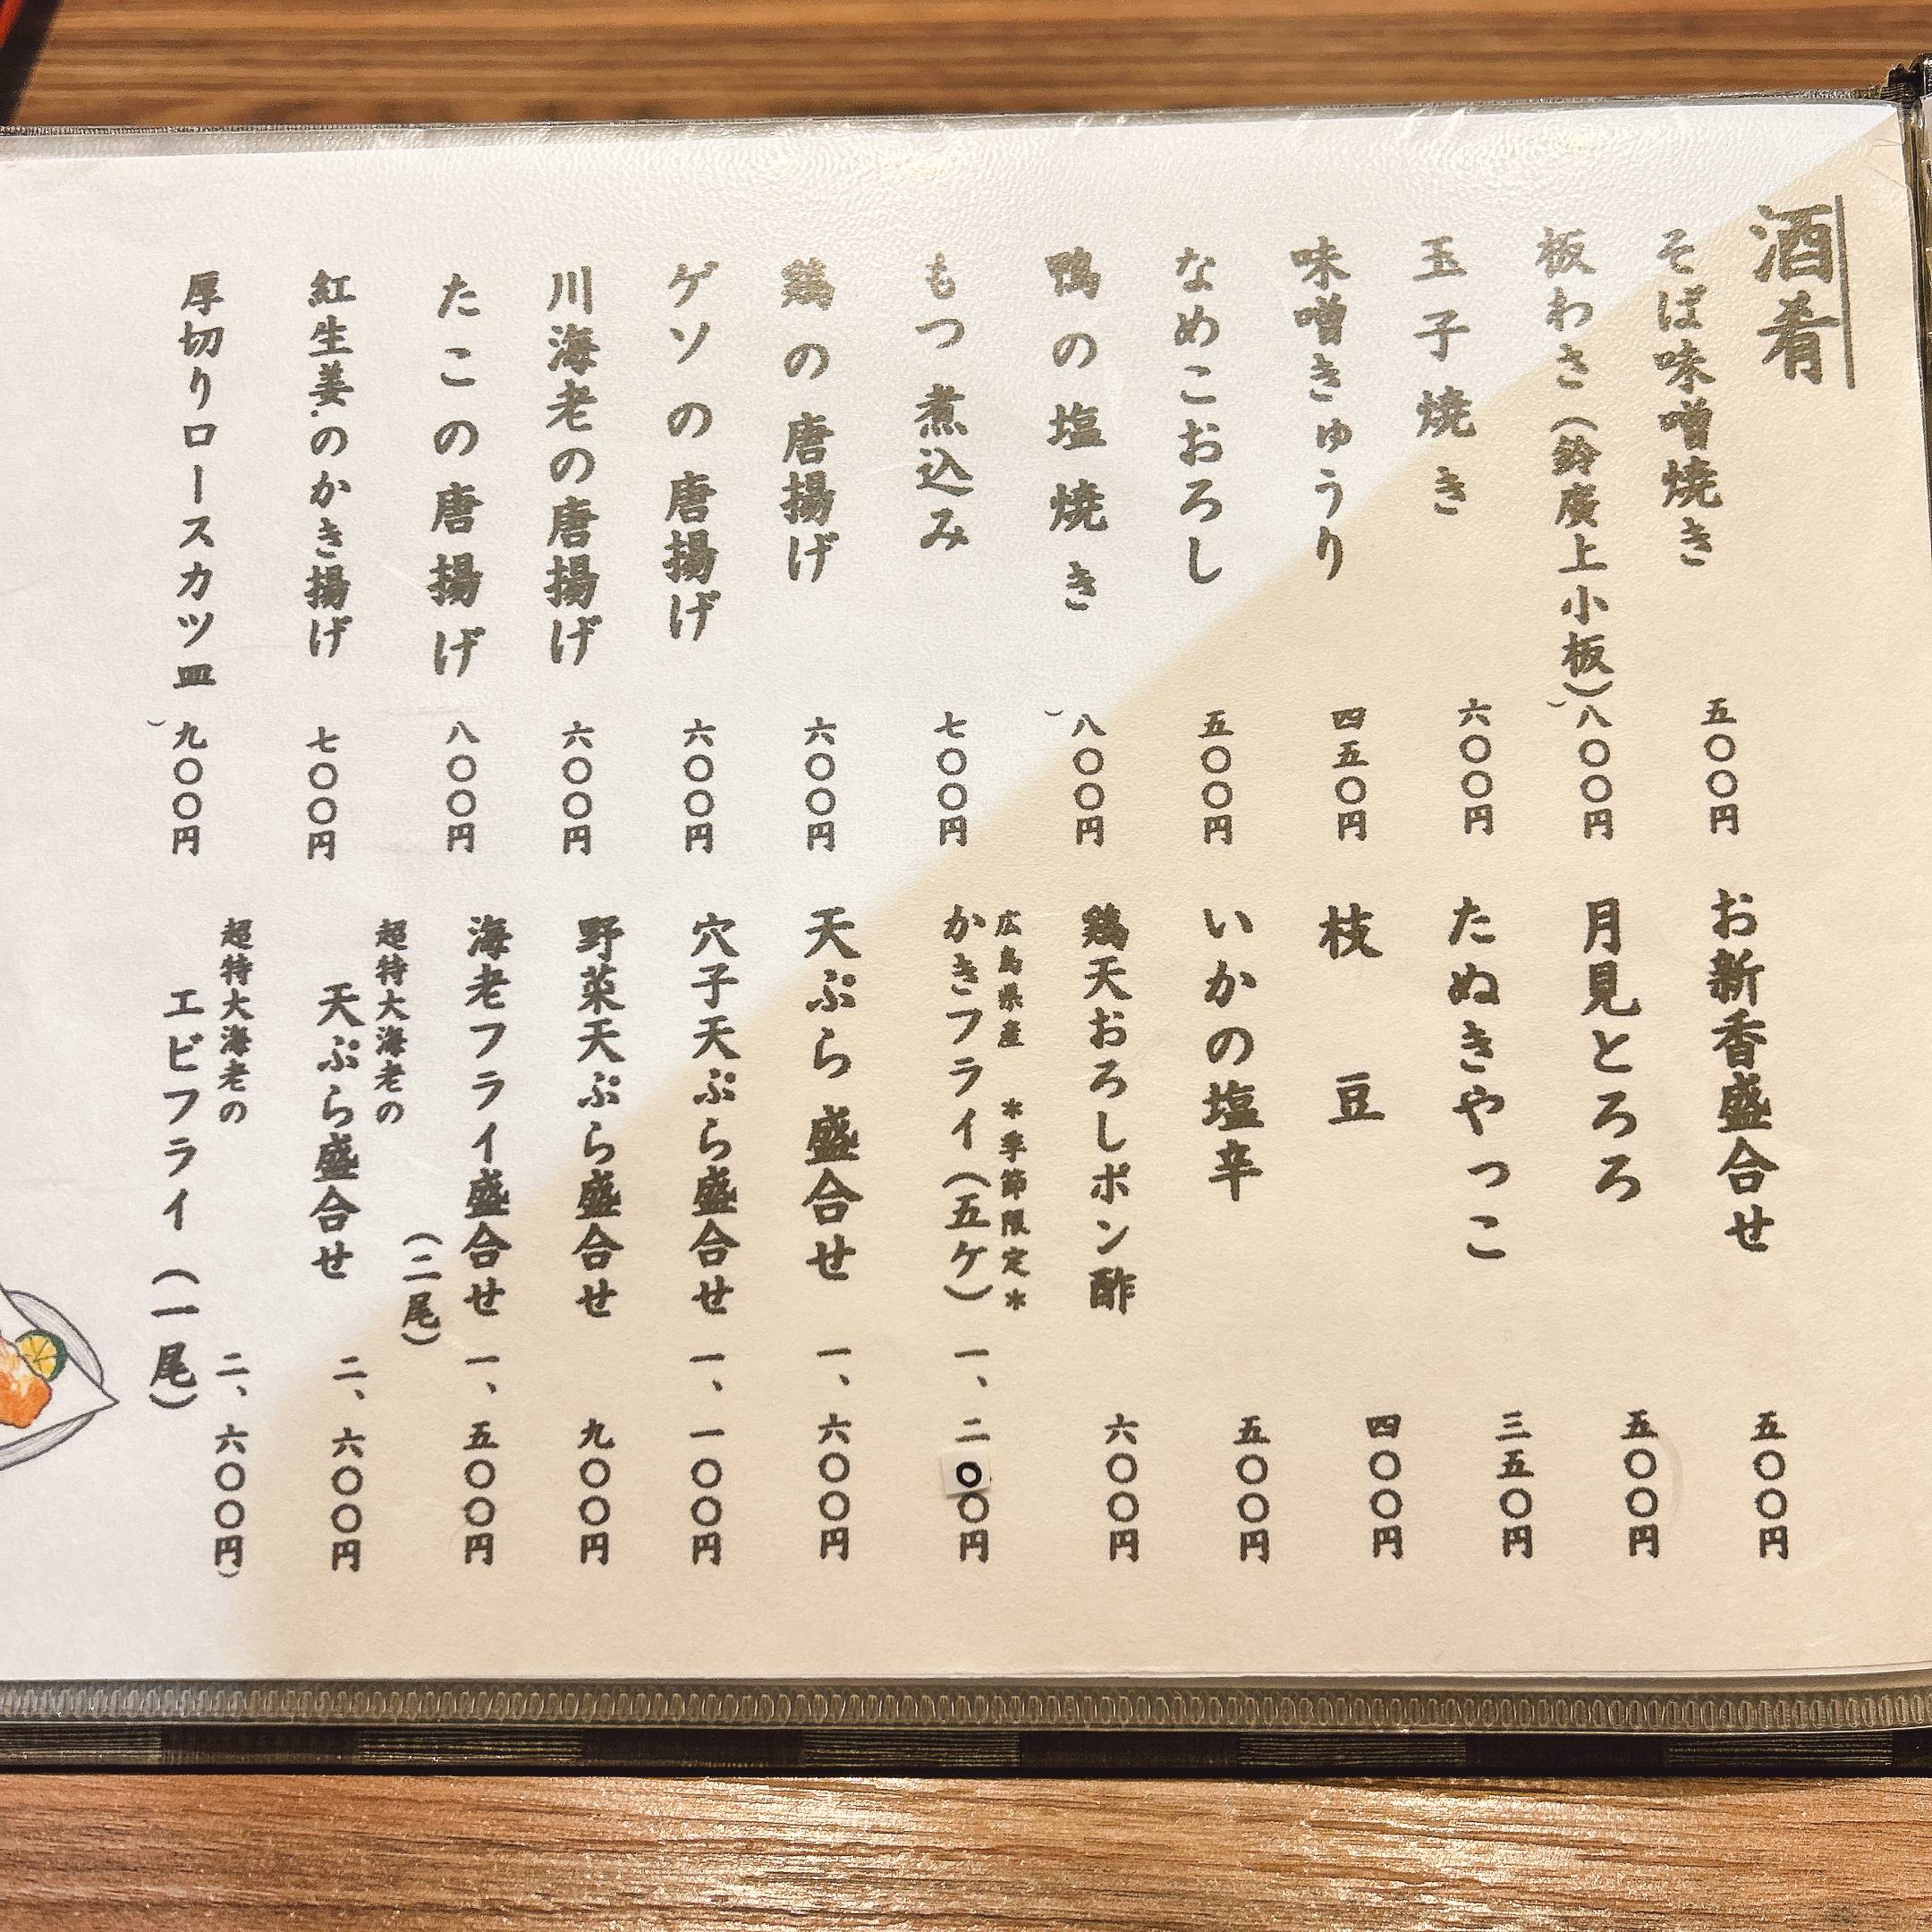 酒肴
そば味噌焼き 五〇〇円
板わさ(鈴廣上小板) 八〇〇円
玉子焼き 六〇〇円
味噌きゅうり 四五〇円
なめこおろし 五〇〇円
鴨の塩焼き 八〇〇円
もつ煮込み 七〇〇円
鶏の唐揚げ 六〇〇円
ゲソの唐揚げ 六〇〇円
川海老の唐揚げ 六〇〇円
たこの唐揚げ 八〇〇円
紅生姜のかき揚げ 七〇〇円
厚切りロースカツ皿 九〇〇円
お新香盛合せ 五〇〇円
月見とろろ 五〇〇円
たぬきやっこ 三五〇円
枝豆 四〇〇円
いかの塩辛 五〇〇円
鶏天おろしポン酢 六〇〇円
広島県産 *季節限定*
かきフライ(五ケ) 一、二〇〇円
天ぷら盛合せ 一、六〇〇円
穴子天ぷら盛合せ 一、一〇〇円
野菜天ぷら盛合せ 九〇〇円
海老フライ盛合せ 一、五〇〇円
(二尾)
超特大海老の
天ぷら盛合せ 二、六〇〇円
超特大海老の
エビフライ(一尾) 二、六〇〇円